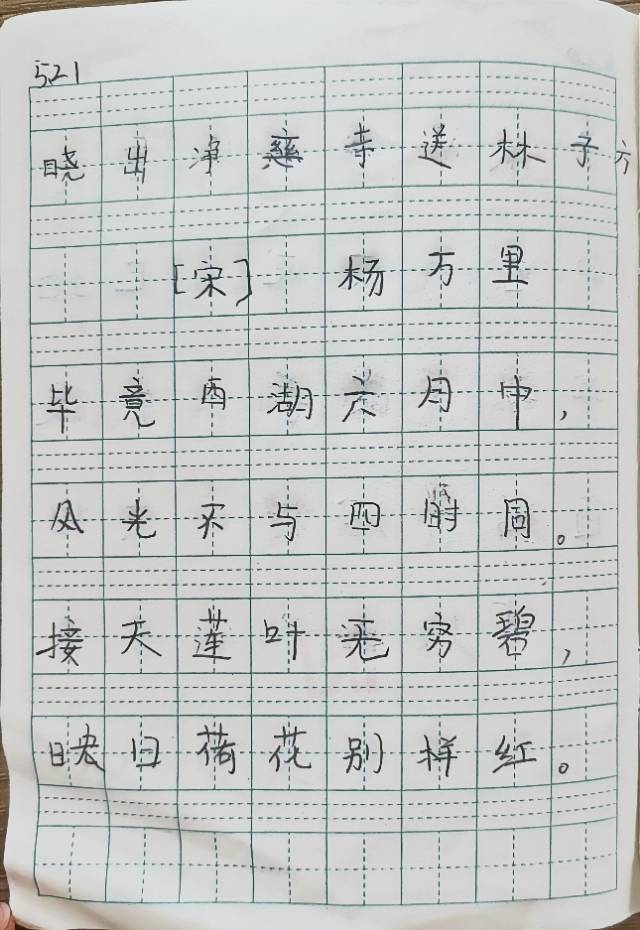 521
晓出净慈寺送林子方
[宋] 杨万里
毕竟西湖六月中,
风光不与四时同。
接天莲叶无穷碧,
映日荷花别样红。